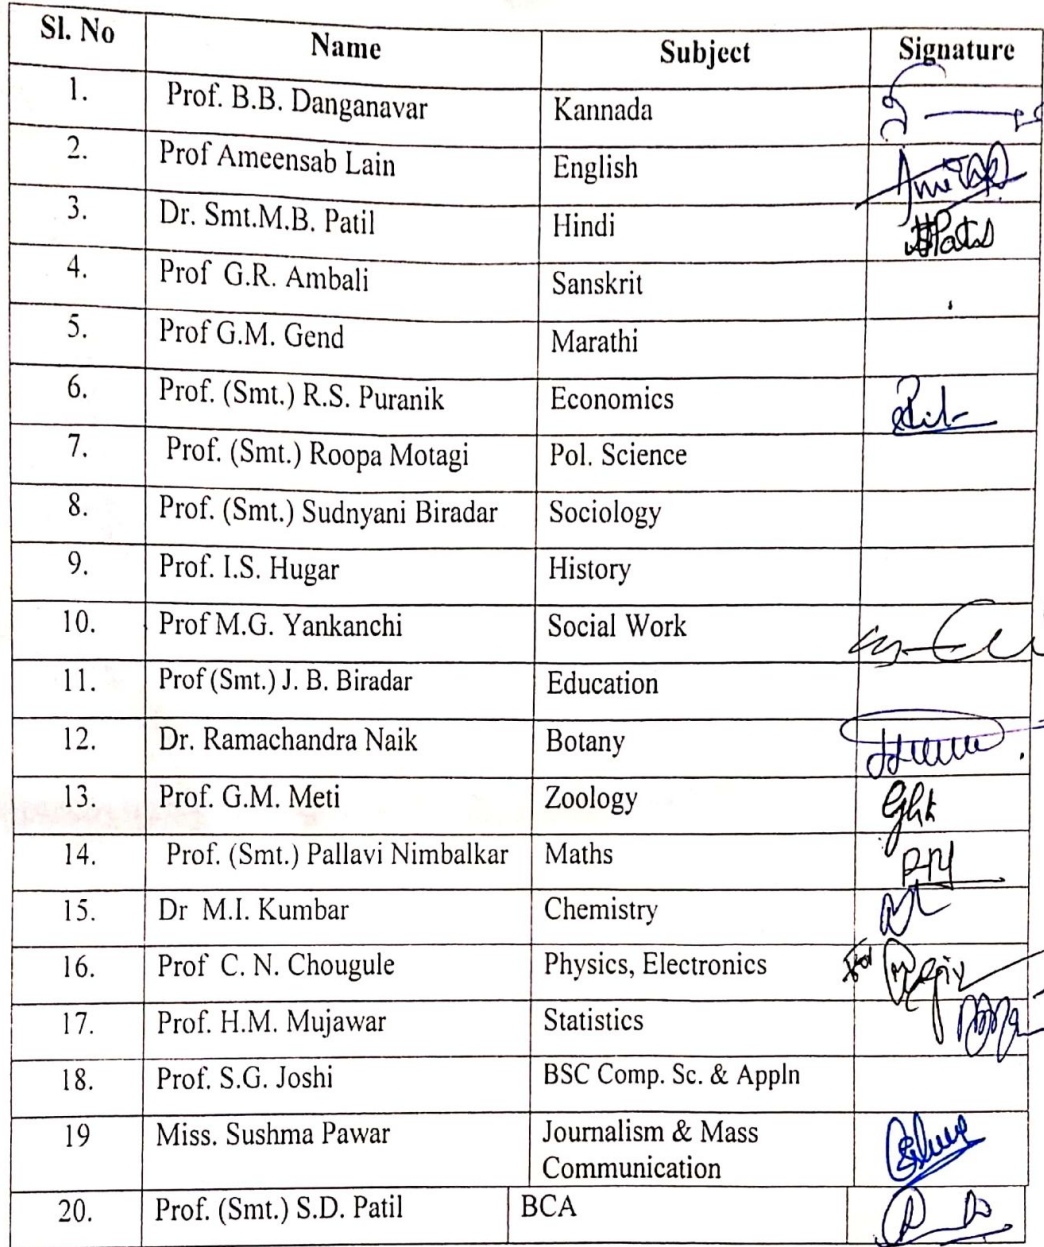 Sl. No Name Subject Signature
1. Prof. B.B. Danganavar Kannada
2. Prof Ameensab Lain English
3. Dr. Smt.M.B. Patil Hindi
4. Prof G.R. Ambali Sanskrit
5. Prof G.M. Gend Marathi
6. Prof. (Smt.) R.S. Puranik Economics
7. Prof. (Smt.) Roopa Motagi Pol. Science
8. Prof. (Smt.) Sudnyani Biradar Sociology
9. Prof. I.S. Hugar History
10. Prof M.G. Yankanchi Social Work
11. Prof (Smt.) J. B. Biradar Education
12. Dr. Ramachandra Naik Botany
13. Prof. G.M. Meti Zoology
14. Prof. (Smt.) Pallavi Nimbalkar Maths
15. Dr M.I. Kumbar Chemistry
16. Prof C. N. Chougule Physics, Electronics
17. Prof. H.M. Mujawar Statistics
18. Prof. S.G. Joshi BSC Comp. Sc. & Appln
19 Miss. Sushma Pawar Journalism & Mass
Communication
20. Prof. (Smt.) S.D. Patil BCA